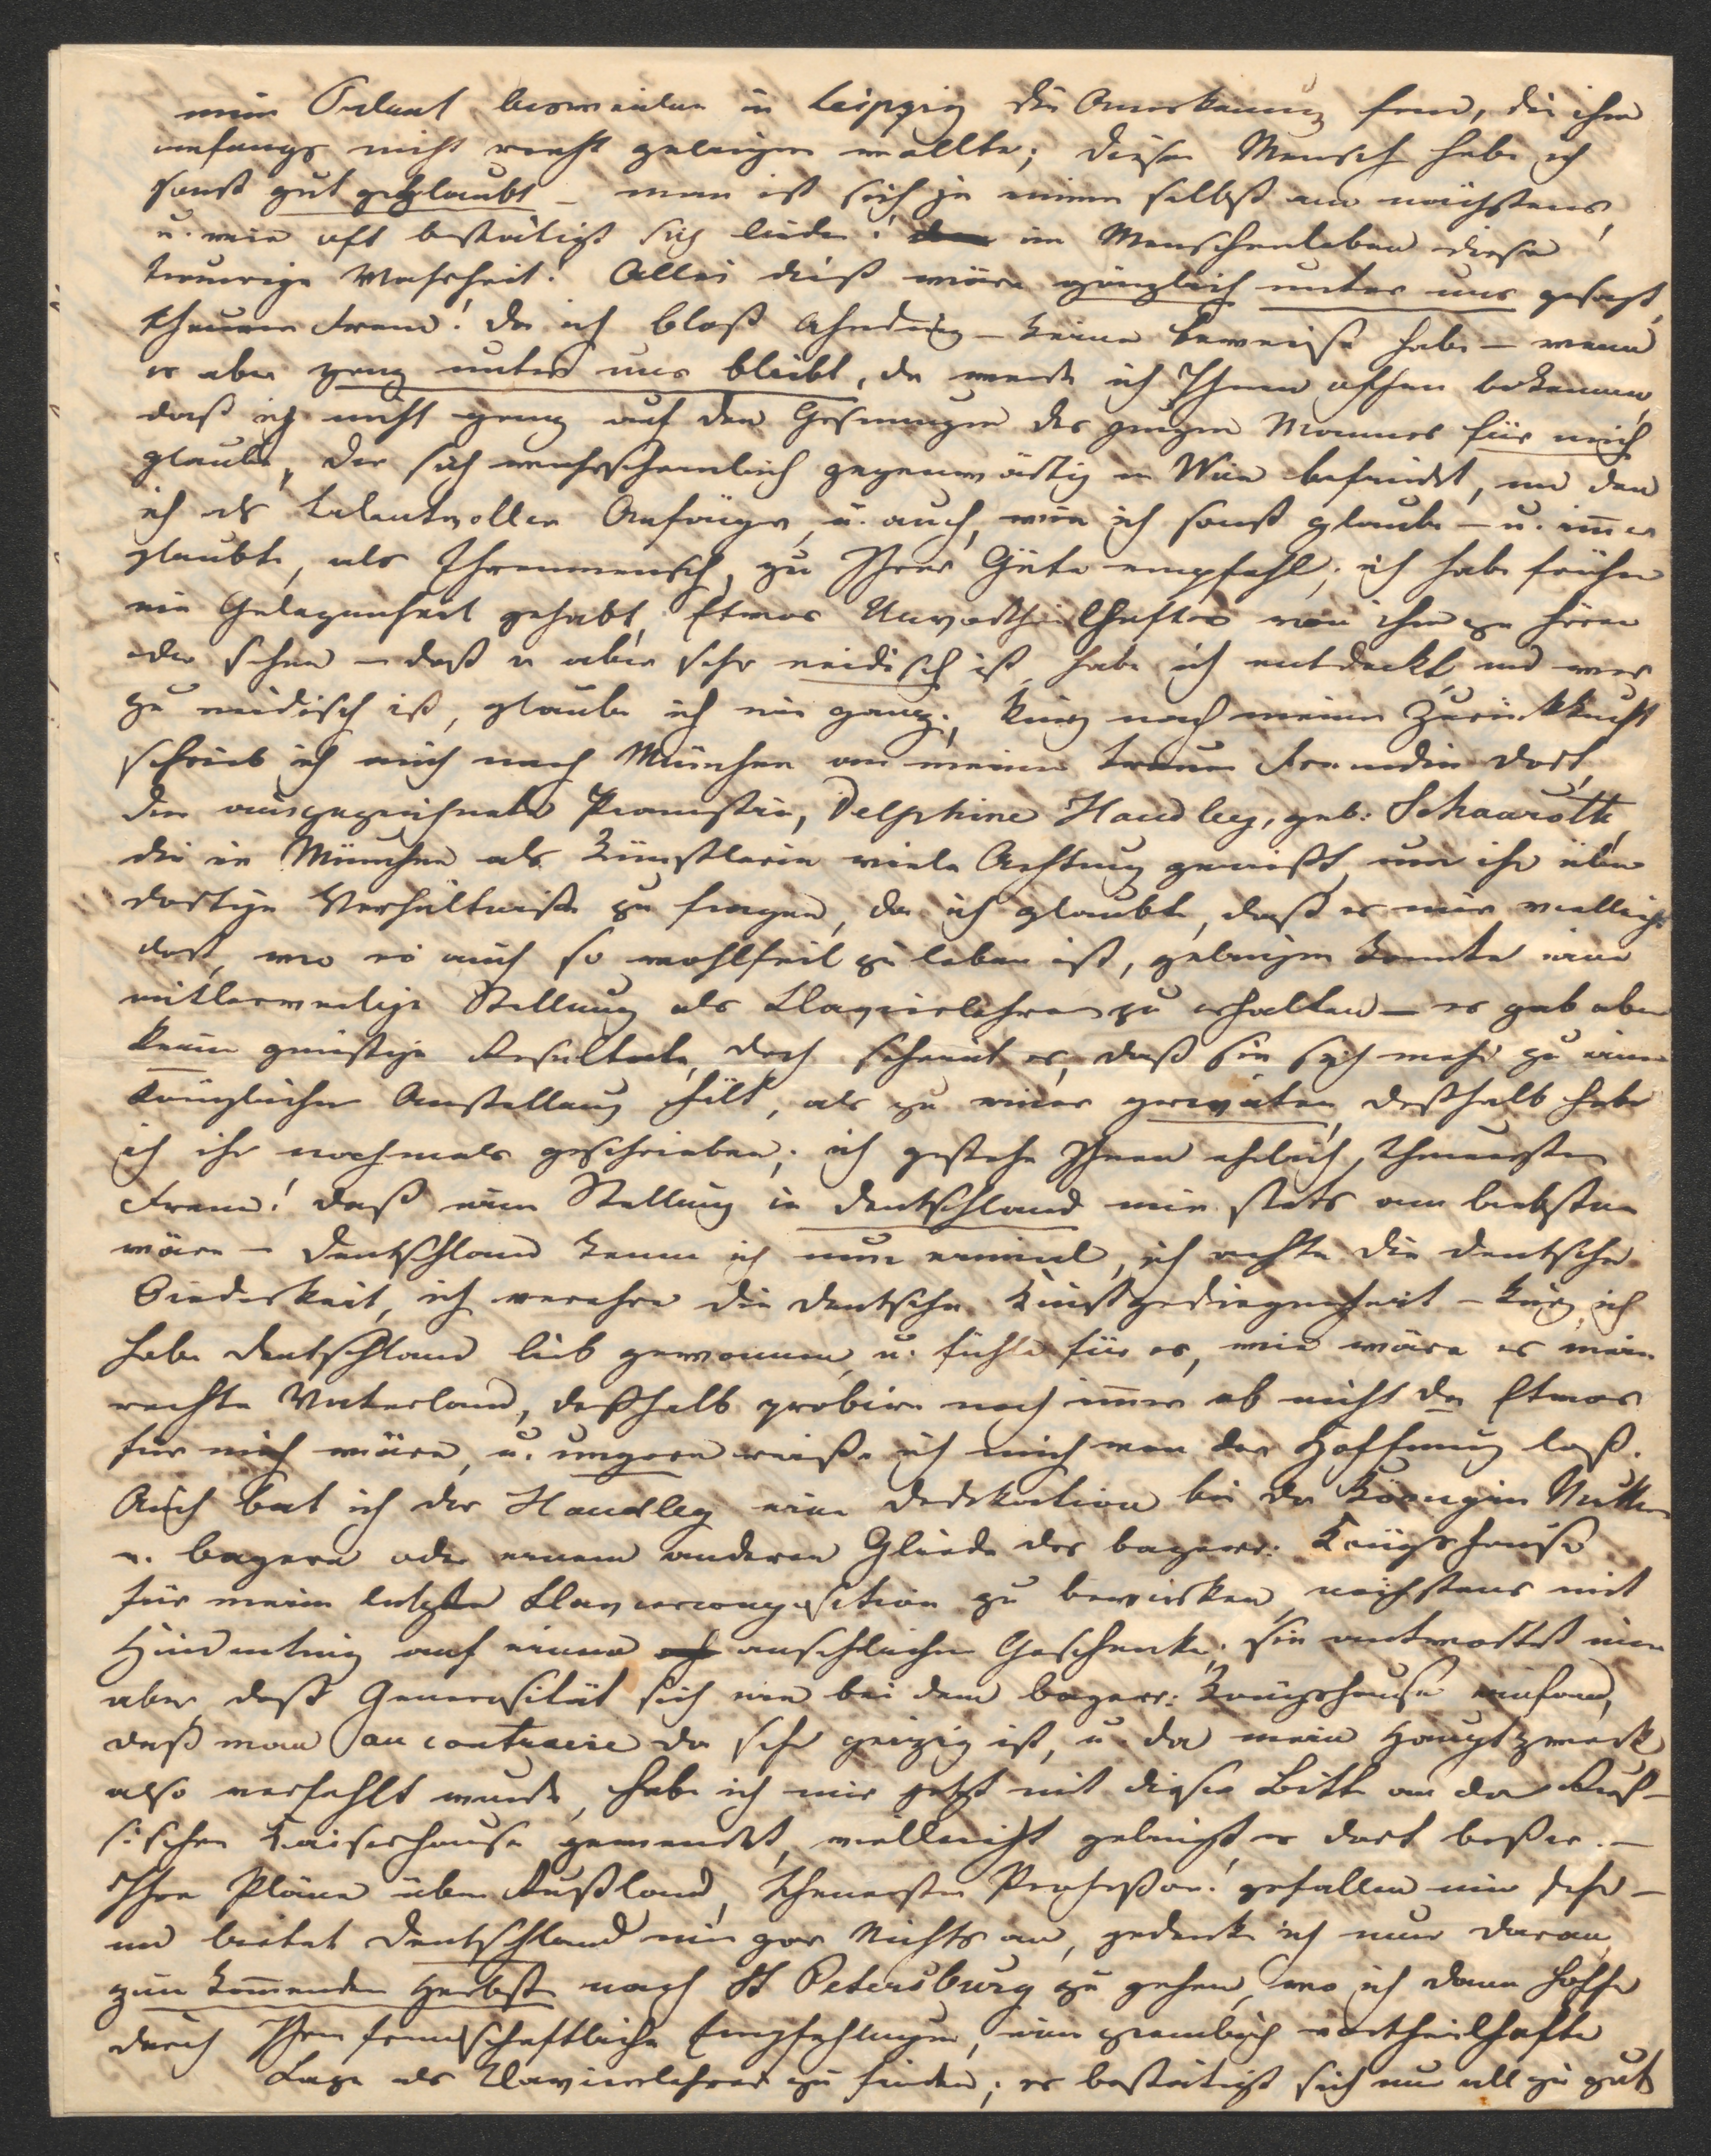 mein Talent bisweilen in Leipzig die Anerkennung fand, die ihm
anfangs nicht recht gelingen wollte; diesen Mensch habe ich
sonst gut geglaubt – man ist sich ja immer selbst am nächsten,
u. wie oft bestätigt sich leider! im Menschenleben diese
traurige Wahrheit! Alles dieß wäre gänzlich unter uns gesagt,
theurer Freund! da ich bloß Ahndung – keine Beweise habe – wenn
es aber ganz unter uns bleibt, da werde ich Ihnen offen bekennen,
daß ich nicht ganz auf den Gesinnungen des jungen Mannes für mich
glaube, der sich wahrscheinlich gegenwärtig in Wien befindet, und den
ich als talentvollen Anfänger, u. auch, wie ich sonst glaube – u. im̄er
glaubte, als Ehrenmensch, zu Ihrer Güte empfahl; ich habe früher
nie Gelegenheit gehabt, Etwas Unvortheilhaftes von ihm zu hören
oder sehen – daß er aber sehr neidisch ist, habe ich entdeckt, und wer
zu neidisch ist, glaube ich nie ganz. Kurz nach meiner Zurückkunft
schrieb ich auch nach München an meine treue Freundin dort,
die ausgezeichnete Pianistin, Delphine Handley, geb: Schauroth,
die in München als Künstlerin viele Achtung genießt, um ihr über
dortige Verhältniße zu fragen, da ich glaubte, daß es mir vielleicht
dort, wo es auch so wohlfeil zu leben ist, gelingen konnte eine
mittlerweilige Stellung als Clavierlehrer zu erhalten – es gab aber
keine günstige Resultate, doch scheint es, daß sie sich mehr zu einer
königlicher Anstellung hält, als zu einer privaten, deßhalb habe
ich ihr nochmals geschrieben; ich gestehe Ihnen ehrlich, theuerster
Freund! daß eine Stellung in Deutschland mir stets am liebsten
wäre – Deutschland kenne ich nun einmal, ich achte die deutsche
Biederkeit, ich verehre die deutsche Kunstgediegenheit – kurz, ich
habe Deutschland lieb gewonnen, u. fühle für es, wie wäre es mein
rechte Vaterland, deßhalb probire noch im̄er ob nicht da Etwas
für mich wäre, u. ungern reiße ich mich von der Hoffnung loß.
Auch bat ich der Handley eine Dedikation bei der Königin Mutter
v. Bayern oder einem anderen Gliede des bayer: Königshauses
für meine letzte Claviercomposition zu bewirken, nächstens mit
Hindeutung auf einem ansehlichen Geschenke; sie antwortet mir
aber, daß Generosität sich nie bei dem bayer: Königshause einfand,
daß man au contraire da sehr geizig ist, u. da mein Hauptzweck
also verfehlt wurde, habe ich mir jetzt mit dieser Bitte an der Ruß-
sischen Kaiserhause gewendet, vielleicht gelingt es dort beßer. –
Ihre Pläne über Rußland, theuerster Professor! gefallen mir sehr –
und bietet Deutschland mir gar Nichts an, gedenke ich nur daran
zum kom̄enden Herbste nach St Petersburg zu gehen, wo ich dann hoffe
durch Ihre freundschaftliche Empfehlungen, eine ziemlich vortheilhafte
Lage als Clavierlehrer zu finden; es bestätigt sich nur all zu gut